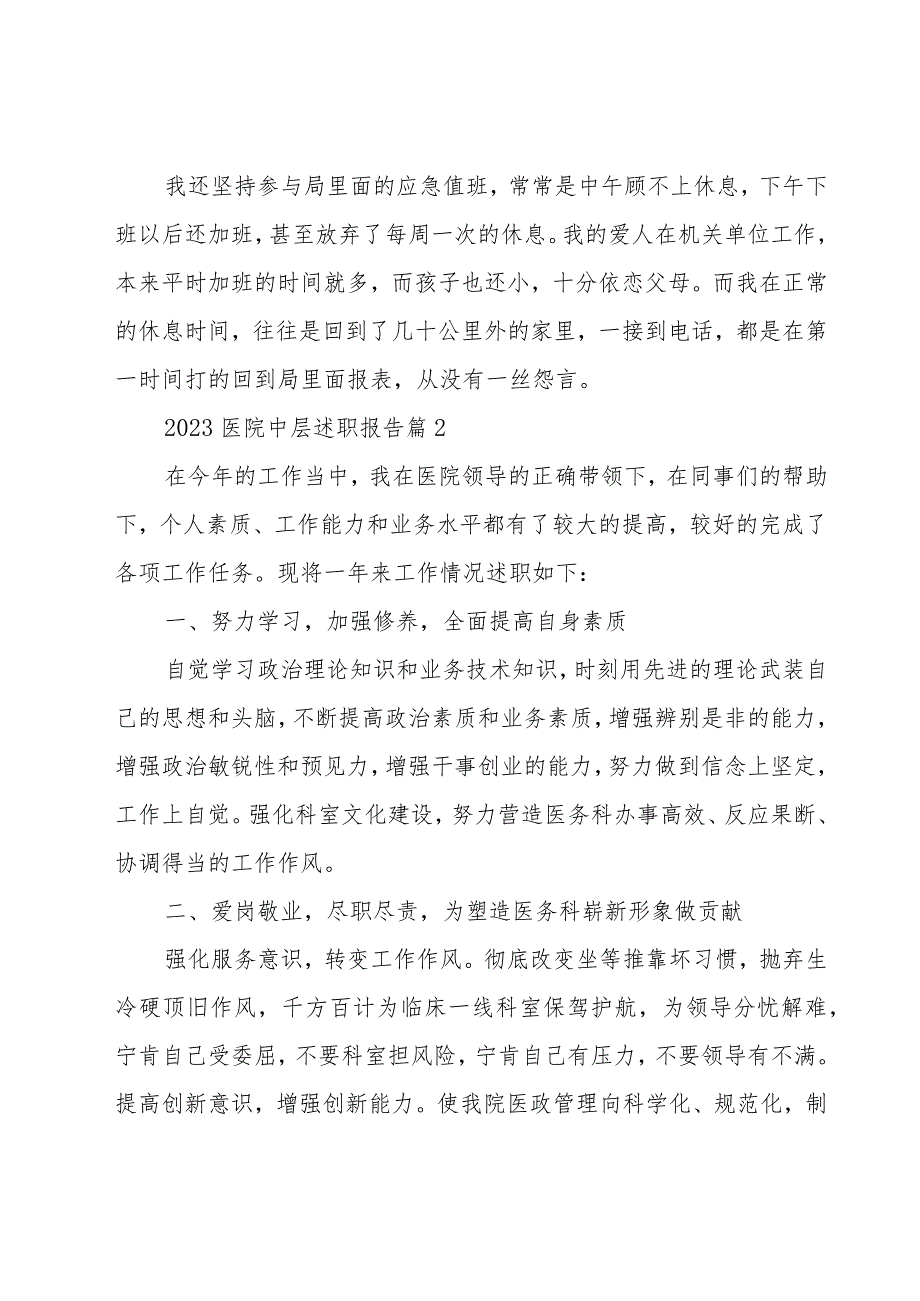 我还坚持参与局里面的应急值班，常常是中午顾不上休息，下午下
班以后还加班，甚至放弃了每周一次的休息。我的爱人在机关单位工作，
本来平时加班的时间就多，而孩子也还小，十分依恋父母。而我在正常
的休息时间，往往是回到了几十公里外的家里，一接到电话，都是在第
一时间打的回到局里面报表，从没有一丝怨言。
2023 医院中层述职报告篇 2
在今年的工作当中，我在医院领导的正确带领下，在同事们的帮助
下，个人素质、工作能力和业务水平都有了较大的提高，较好的完成了
各项工作任务。现将一年来工作情况述职如下：
一、努力学习，加强修养，全面提高自身素质
自觉学习政治理论知识和业务技术知识，时刻用先进的理论武装自
己的思想和头脑，不断提高政治素质和业务素质，增强辨别是非的能力，
增强政治敏锐性和预见力，增强干事创业的能力，努力做到信念上坚定，
工作上自觉。强化科室文化建设，努力营造医务科办事高效、反应果断、
协调得当的工作作风。
二、爱岗敬业，尽职尽责，为塑造医务科崭新形象做贡献
强化服务意识，转变工作作风。彻底改变坐等推靠坏习惯，抛弃生
冷硬顶旧作风，千方百计为临床一线科室保驾护航，为领导分忧解难，
宁肯自己受委屈，不要科室担风险，宁肯自己有压力，不要领导有不满。
提高创新意识，增强创新能力。使我院医政管理向科学化、规范化，制